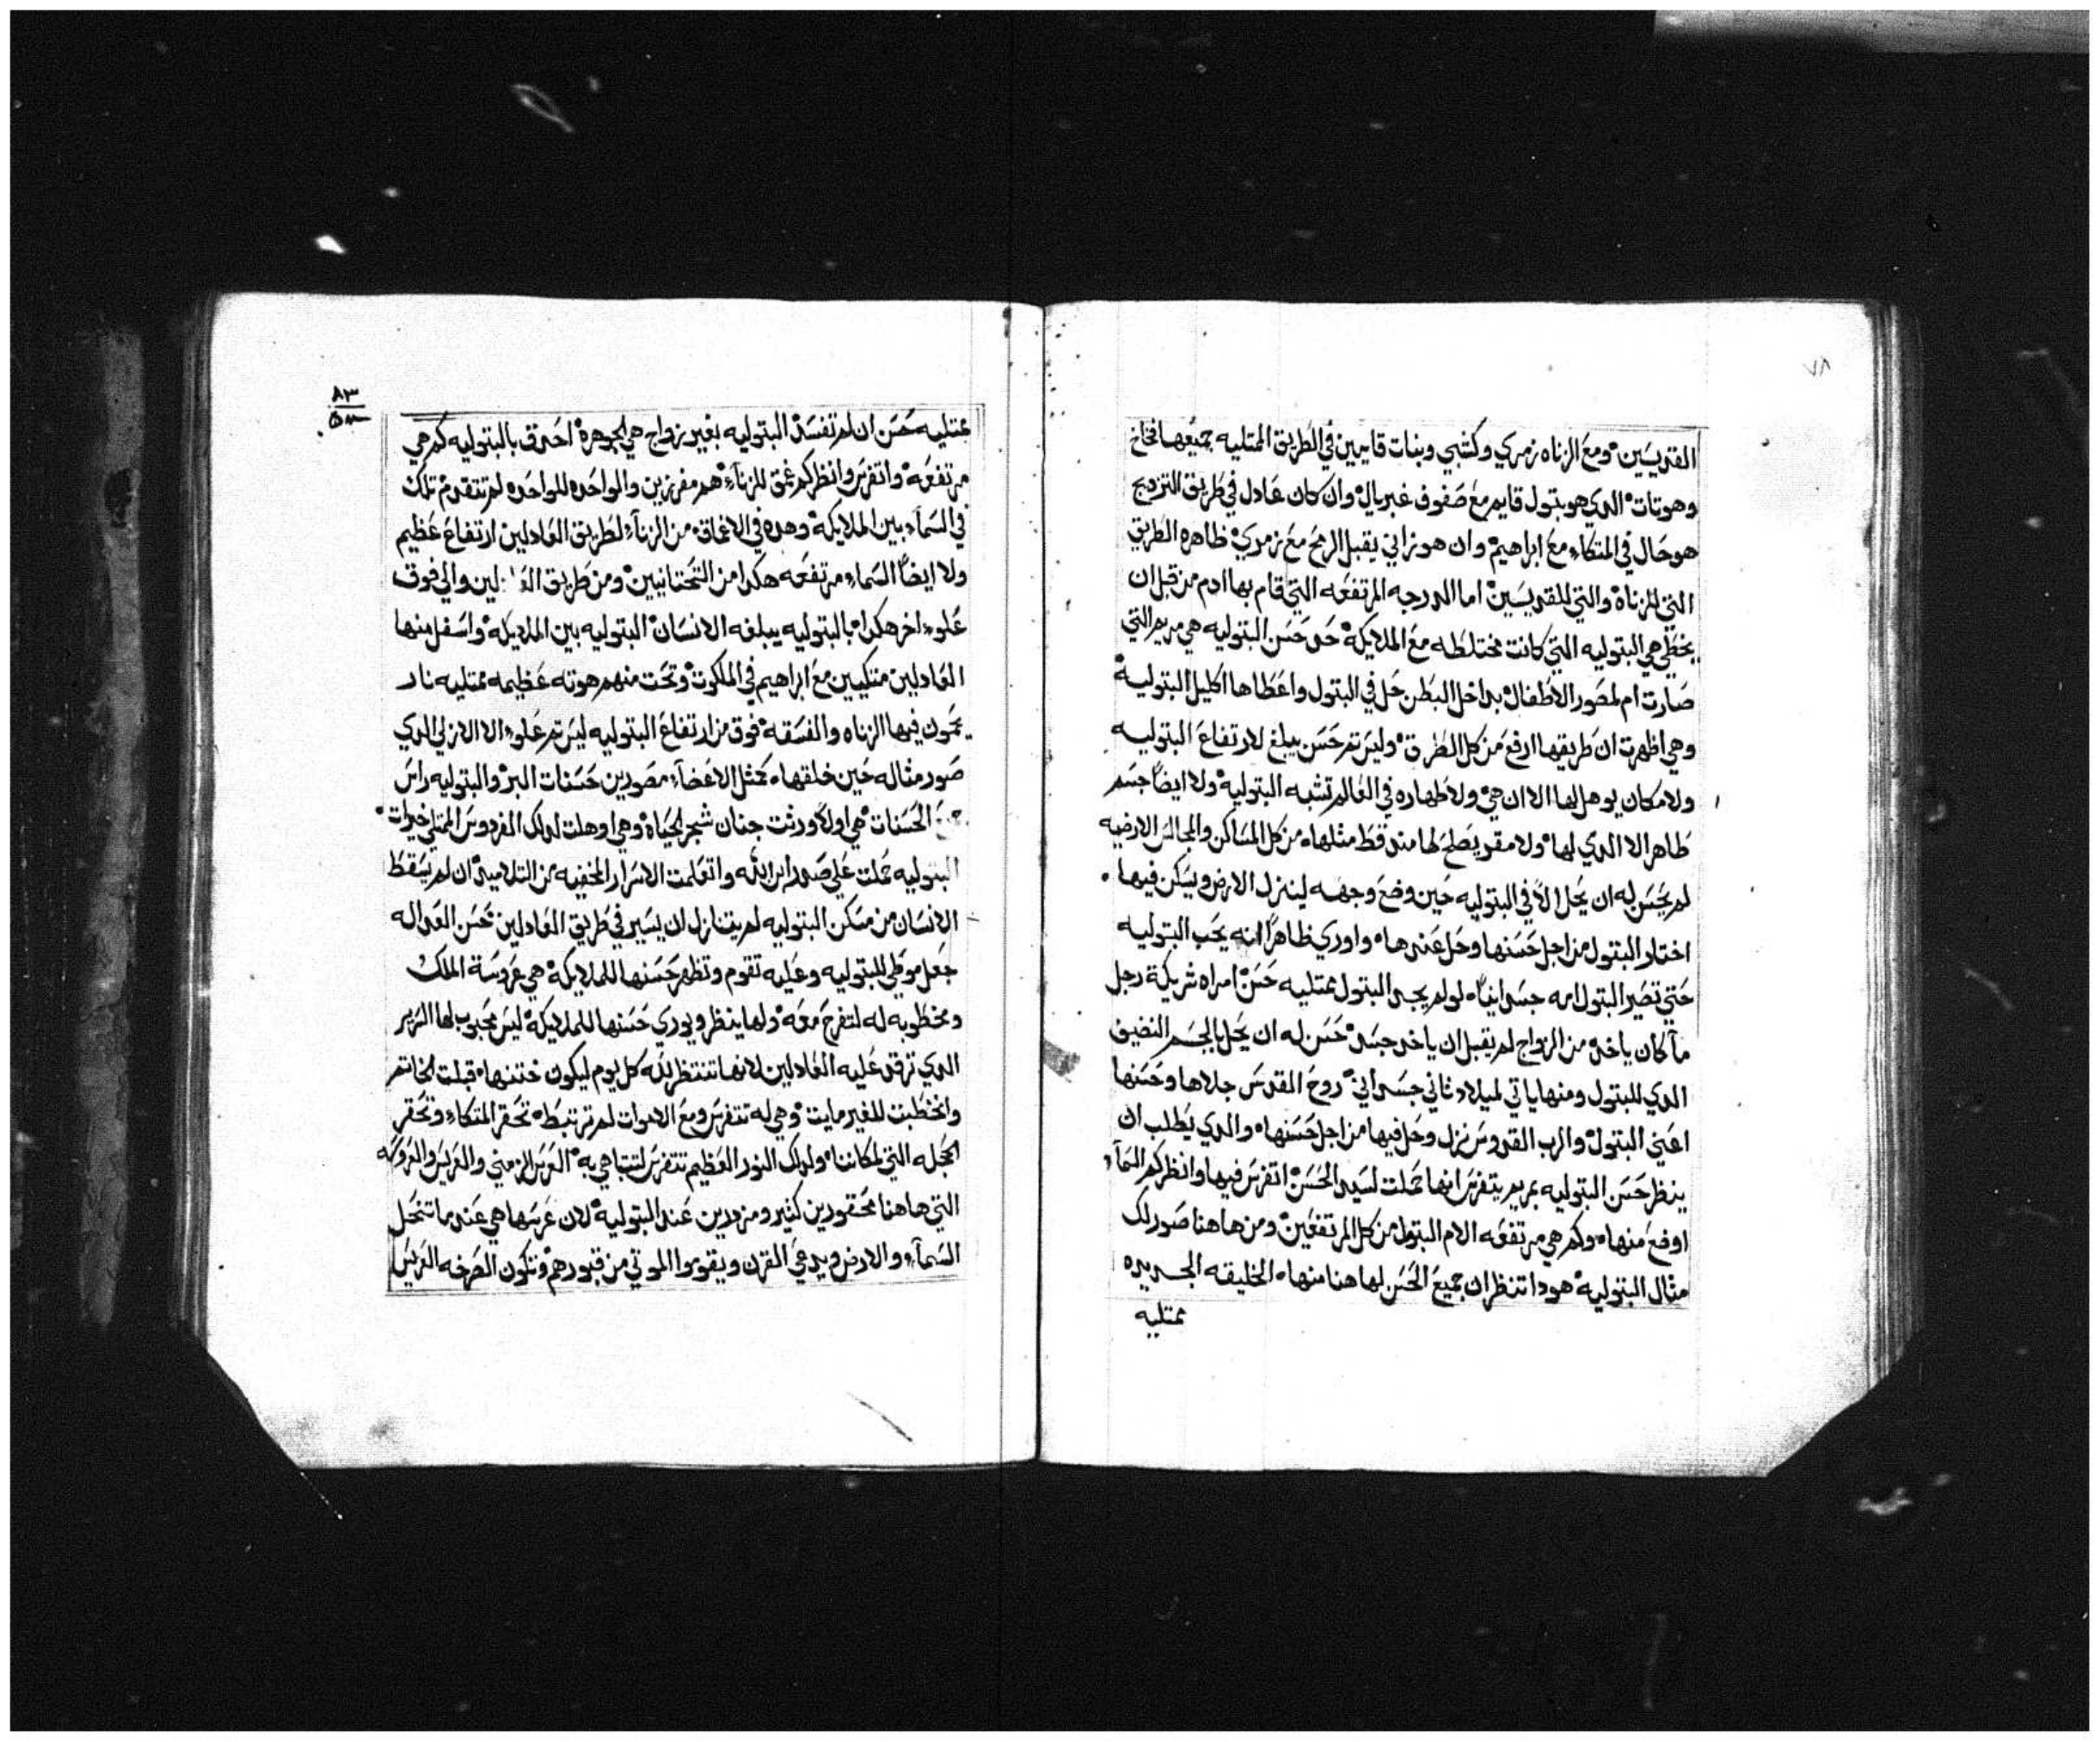 ٧٨
القديسين ومع الزناه زمري وكشبي وبنات قايمين في الطريق الممتليه جميعها فخاخ
وهوتات الدي هو بتول قايم مع صفوف غبريال وان كان عادل في طريق التزويج
هو حال في المتكاء مع ابراهيم وان هو زاني يقبل الرمح مع زمري ظاهره الطريق
التي للزناة والتي للقديسين اما الدرجه المرتفعه التي قام بها ادم من قبل ان
يخطي هي البتوليه التي كانت مختلطه مع الملايكة حدى حسن البتوليه هي مريم التي
صارت ام لمصور الاطفال بداخل البطن حل في البتول واعطاها اكليل البتولية
وهي اظهرت ان طريقها ارفع من كل الطرق وليس تم حسن يبلغ لارتفاع البتوليه
ولا مكان يوهل لها الا ان هي ولا طهاره في العالم تشبه البتولية ولا ايضا جسم
طاهر الا الدي لها ولا مقر يصلح لها مند قط مثلها من كل المساكن والمجالس الارضيه
لم يحسن له ان يحل الا في البتوليه حين وضع وجهه لينزل الارض ويسكن فيها
اختار البتول من اجل حسنها وحل عندها واوري ظاهرا انه يحب البتوليه
حتي تصير البتول امه جسدانيا لو لم يجد البتول ممتليه حسن امراه شريكة رجل
ما كان ياخد من الزواج لم يقبل ان ياخد جسد حسن له ان يحل بالجسم النضيف
الدي للبتول ومنها ياتي لميلاد ثاني جسداني روح القدس جلاها وحسنها
اعني البتول والرب القدوس نزل وحل فيها من اجل حسنها والدي يطلب ان
ينظر حسن البتوليه بمريم يتفرس انها حملت لسيد الحسن اتفرس فيها وانظر كم السمآء
اوضع منها وكم هي مرتفعه الام البتول من كل المرتفعين ومن هاهنا صور لك
مثال البتولية هودا تنظر ان جميع الحسن لها هنا منها الخليقه الجديده
ممتليه
٨٣
ممتليه حسن ان لم تفسد البتوليه بغير زواج هي الجوهرة احدق بالبتوليه كم هي
مرتفعه واتفرس وانظر كم غمق للزناء هم مفرزين والواحده للواحده لم تتقدم تلك
في السمآء بين الملايكة وهده في الاغماق من الزنآء لطريق العادلين ارتفاع عظيم
ولا ايضا السماء مرتفعه هكدا من التحتانيين ومن طريق والي فوق
علوء اخر هكدا بالبتوليه يبلغه الانسان البتوليه بين الملايكة واسفل منها
العادلين متكيين مع ابراهيم في الملكوت وتحت منهم هوته عظيمه ممتليه نار
يحمون فيها الزناه والفسقه فوق من ارتفاع البتوليه ليس تم علوء الا الازلي الدي
صور مثاله حين خلقها كمثل الاعضآء مصورين حسنات البر والبتوليه راس
الحسنات هي اولا ورثت جنان شجر الحياة وهي اوهلت لدلك الفردوس الممتلي خيرات
البتوليه حملت علي صدر ابن الله واتعلمت الاسرار المخفيه من التلاميد ان لم يسقط
الانسان من مسكن البتوليه لم يتنازل ان يسير في طريق العادلين حسن العداله
جعل موطي للبتوليه وعليه تقوم وتظهر حسنها للملايكة هي عروسة الملك
ومخطوبه له لتفرح معه ولها ينظر ويوري حسنها للملايكة ليس محبوب لها السرير
الدي ترقد عليه العادلين لانها تنتظر لله كل يوم ليكون ختنها قبلت الخاتم
وانخطبت للغير مايت وهي له تتفرس ومع الاموات لم ترتبط تحقر المتكاء وتحقر
الحجله التي لمكاننا ولدلك النور العظيم تتفرس لتتباهي به العرس الزمني والعريس والعروسه
التي هاهنا محقورين كثير ومزدرين عند البتولية لان عرسها هي عندما تنحل
السمآء والارض ويدعي القرن ويقوموا الموتي من قبورهم وتكون الصرخه العريس